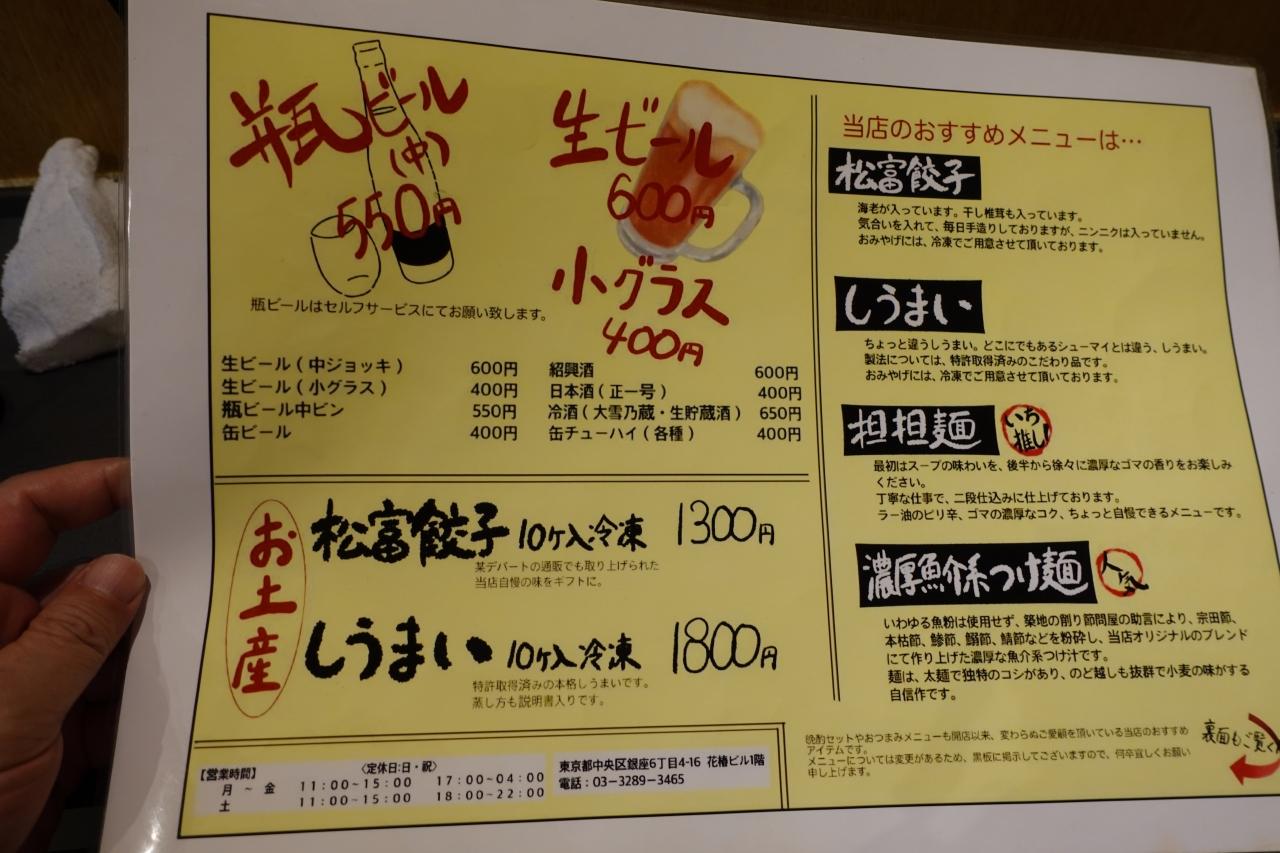 瓶ビール
(中)
550円
瓶ビールはセルフサービスにてお願い致します。
生ビール
600円
小グラス
400円
生ビール(中ジョッキ) 600円
生ビール(小グラス) 400円
瓶ビール中ビン 550円
缶ビール 400円
紹興酒 600円
日本酒(正一号) 400円
冷酒(大雪乃蔵・生貯蔵酒) 650円
缶チューハイ(各種) 400円
お土産
松富餃子 10ケ入冷凍 1300円
某デパートの通販でも取り上げられた
当店自慢の味をギフトに。
しうまい 10ケ入冷凍 1800円
特許取得済みの本格しうまいです。
蒸し方も説明書入りです。
【営業時間】 〈定休日:日・祝〉
月 ~ 金 11:00~15:00 17:00~04:00
土 11:00~15:00 18:00~22:00
東京都中央区銀座6丁目4-16 花椿ビル1階
電話:03-3289-3465
当店のおすすめメニューは…
松富餃子
海老が入っています。干し椎茸も入っています。
気合いを入れて、毎日手造りしておりますが、ニンニクは入っていません。
おみやげには、冷凍でご用意させて頂いております。
しうまい
ちょっと違うしうまい。どこにでもあるシューマイとは違う、しうまい。
製法については、特許取得済みのこだわり品です。
おみやげには、冷凍でご用意させて頂いております。
担担麺 いち推し!
最初はスープの味わいを、後半から徐々に濃厚なゴマの香りをお楽しみ
ください。
丁寧な仕事で、二段仕込みに仕上げております。
ラー油のピリ辛、ゴマの濃厚なコク、ちょっと自慢できるメニューです。
濃厚魚介系つけ麺 人気
いわゆる魚粉は使用せず、築地の削り節問屋の助言により、宗田節、
本枯節、鯵節、鰯節、鯖節などを粉砕し、当店オリジナルのブレンド
にて作り上げた濃厚な魚介系つけ汁です。
麺は、太麺で独特のコシがあり、のど越しも抜群で小麦の味がする
自信作です。
晩酌セットやおつまみメニューも開店以来、変わらぬご愛顧を頂いている当店のおすすめ
アイテムです。
メニューについては変更があるため、黒板に掲示してございますので、何卒宜しくお願い
申し上げます。
裏面もご覧く